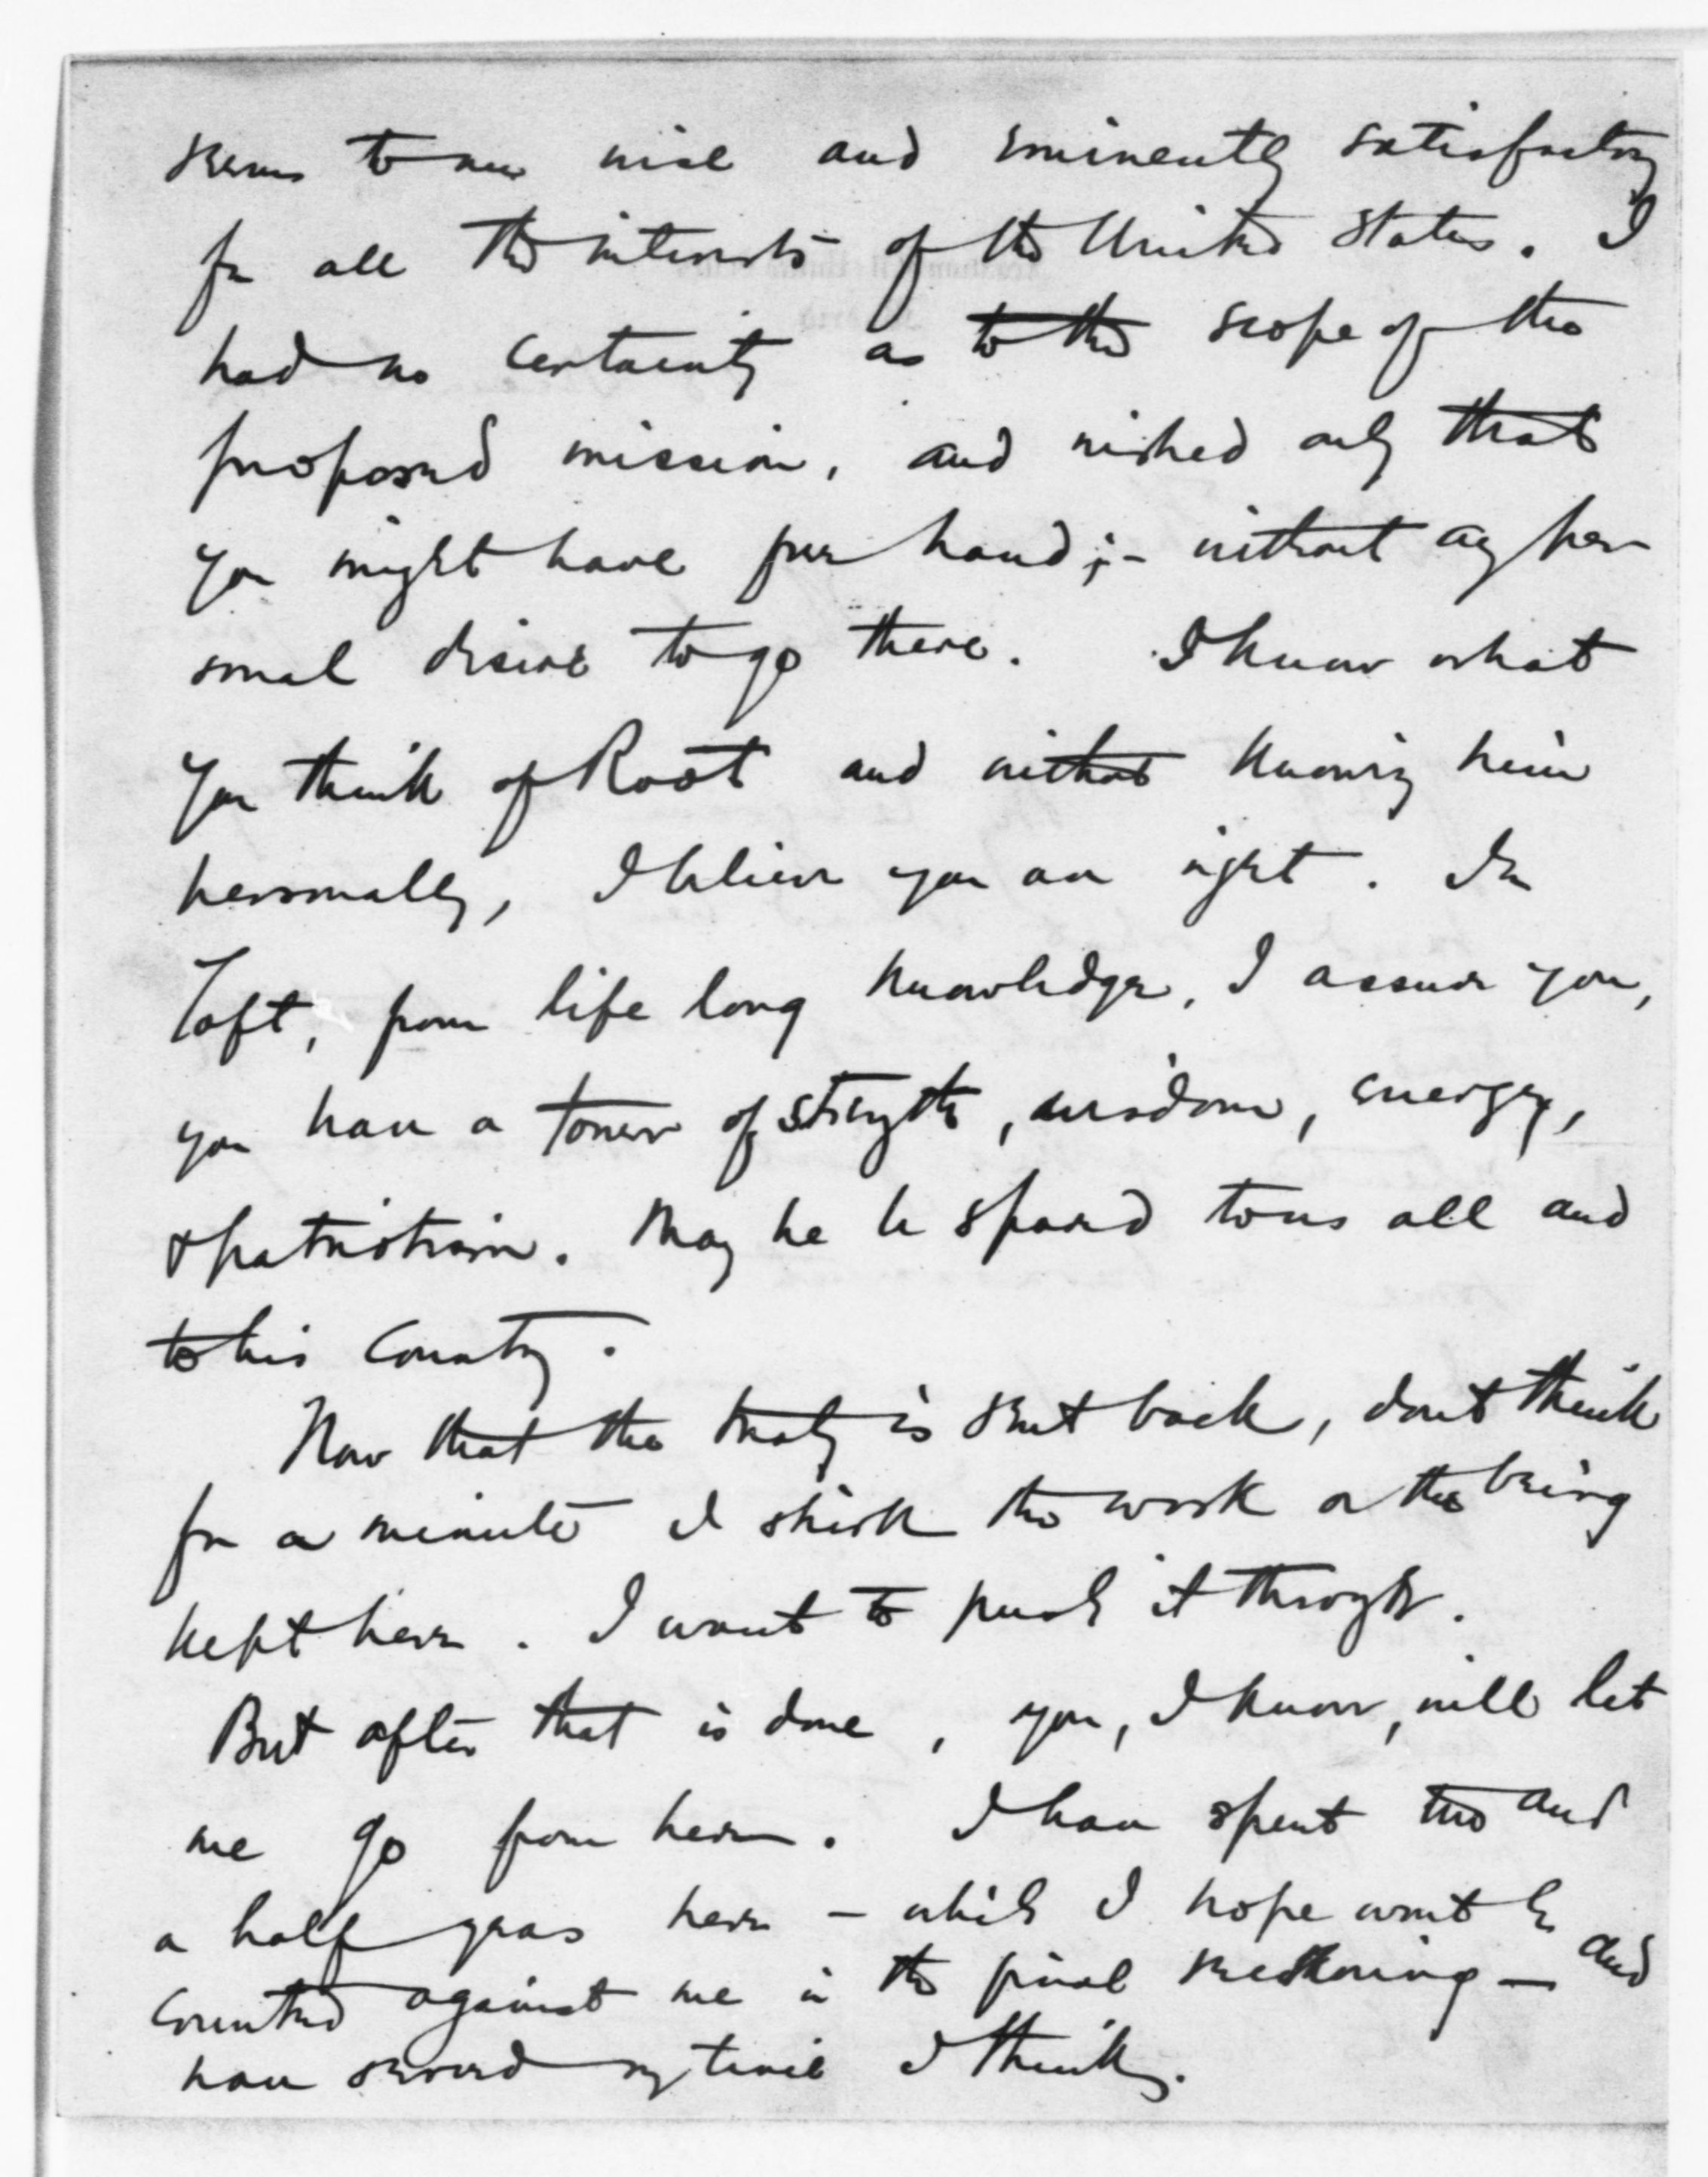 seems to me wise and eminently satisfactory
for all the interests of the United States. I
had no certainty as to the scope of the
proposed mission, and wished only that
you might have free hand;- without any per-
sonal desire to go there. I know what
you think of Root and without knowing him
personally, I believe you are right. In
Taft, from life long knowledge, I assure you,
you have a tower of strength, wisdom, energy,
& patriotism. May he be spared to us all and
to his country.
Now that the treaty is sent back, dont think
for a minute I shirk the work or the being
kept here. I want to push it through.
But after that is done, you, I know, will let
me go from here. I have spent two and
a half years here - which I hope wont be
counted against me in the final reckoning - and
have served my time I think.